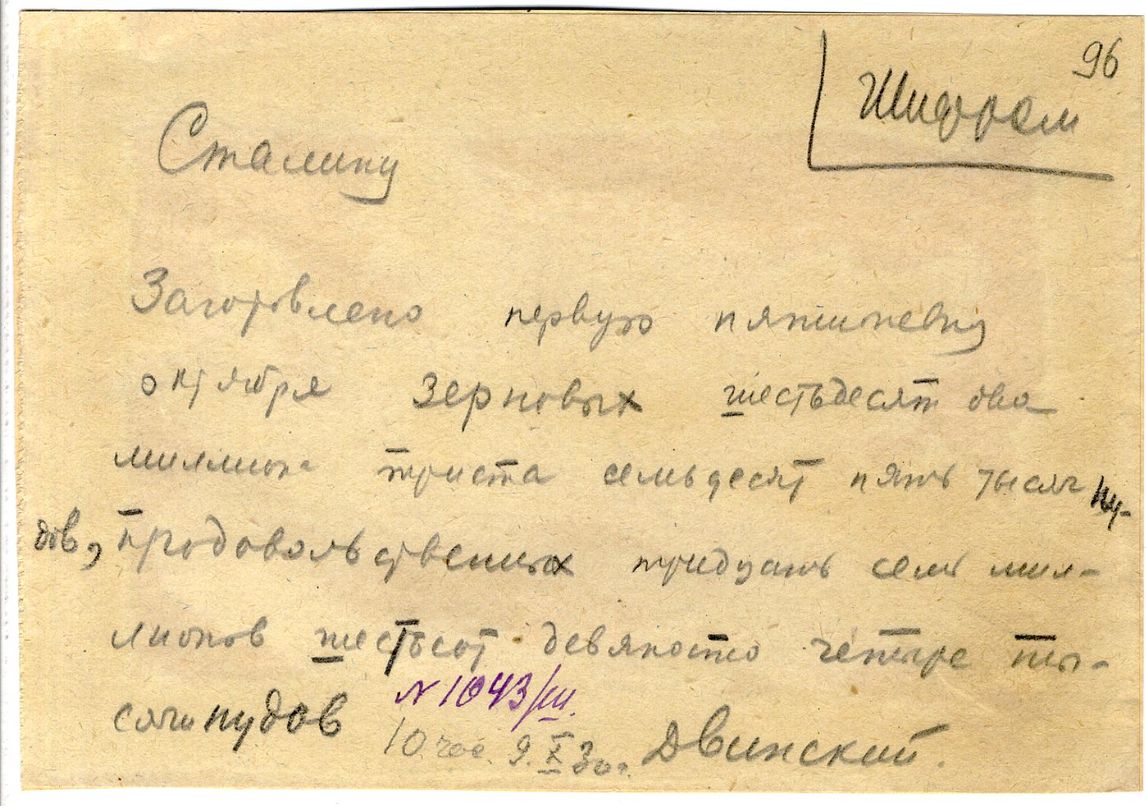 96
Шифром
Сталину
Заготовлено первую пятидневку
октября зерновых шестьдесят два
миллиона триста семьдесят пять тысяч пу-
дов, продовольственных тридцать семь мил-
лионов шестьсот девяносто четыре ты-
сячи пудов
N 1043/ш.
10 час. 9.X 30 г. Двинский.